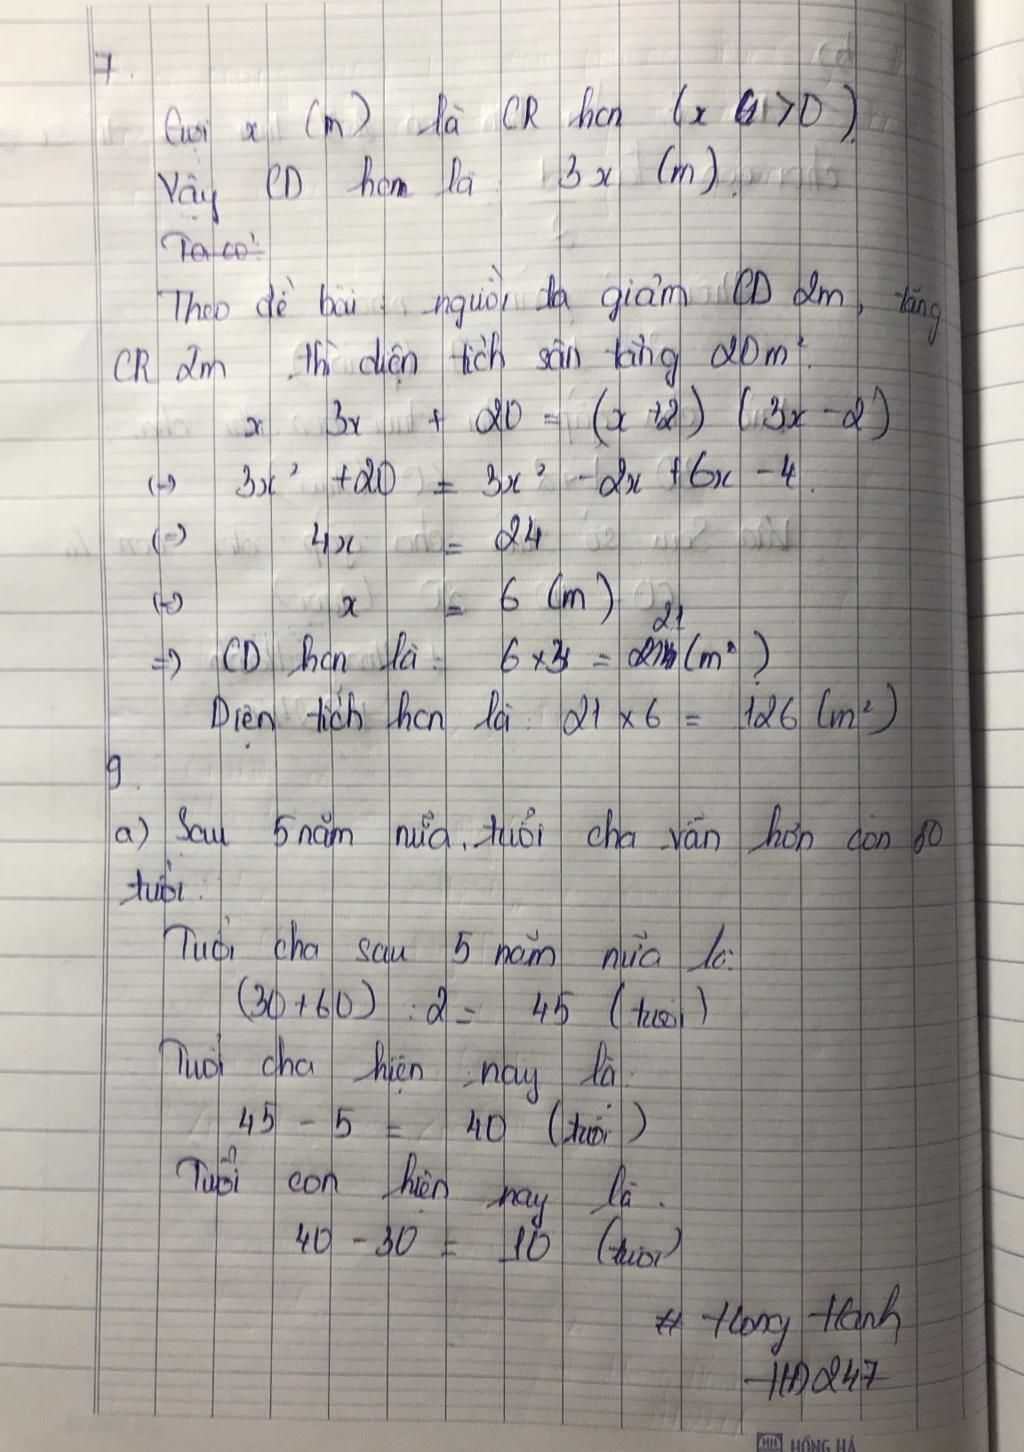 7.
Gọi x (m) là CR hcn (x > 0)
Vậy CD hcn là 3x (m)
Ta có:
Theo đề bài, người ta giảm CD 2m, tăng
CR 2m thì diện tích sân tăng 20m²
x 3x + 20 = (x +2) (3x - 2)
(=) 3x² + 20 = 3x² - 2x + 6x - 4
(=) 4x = 24
(=) x = 6 (m)
=) CD hcn là: 6 x 3 = 21 (m²)
Diện tích hcn là: 21 x 6 = 126 (m²)
9.
a) Sau 5 năm nữa, tuổi cha vẫn hơn con 30
tuổi.
Tuổi cha sau 5 năm nữa là:
(30 + 60) : 2 = 45 (tuổi)
Tuổi cha hiện nay là:
45 - 5 = 40 (tuổi)
Tuổi con hiện nay là:
40 - 30 = 10 (tuổi)
# Hong Hanh
HD247
HH HỒNG HÀ